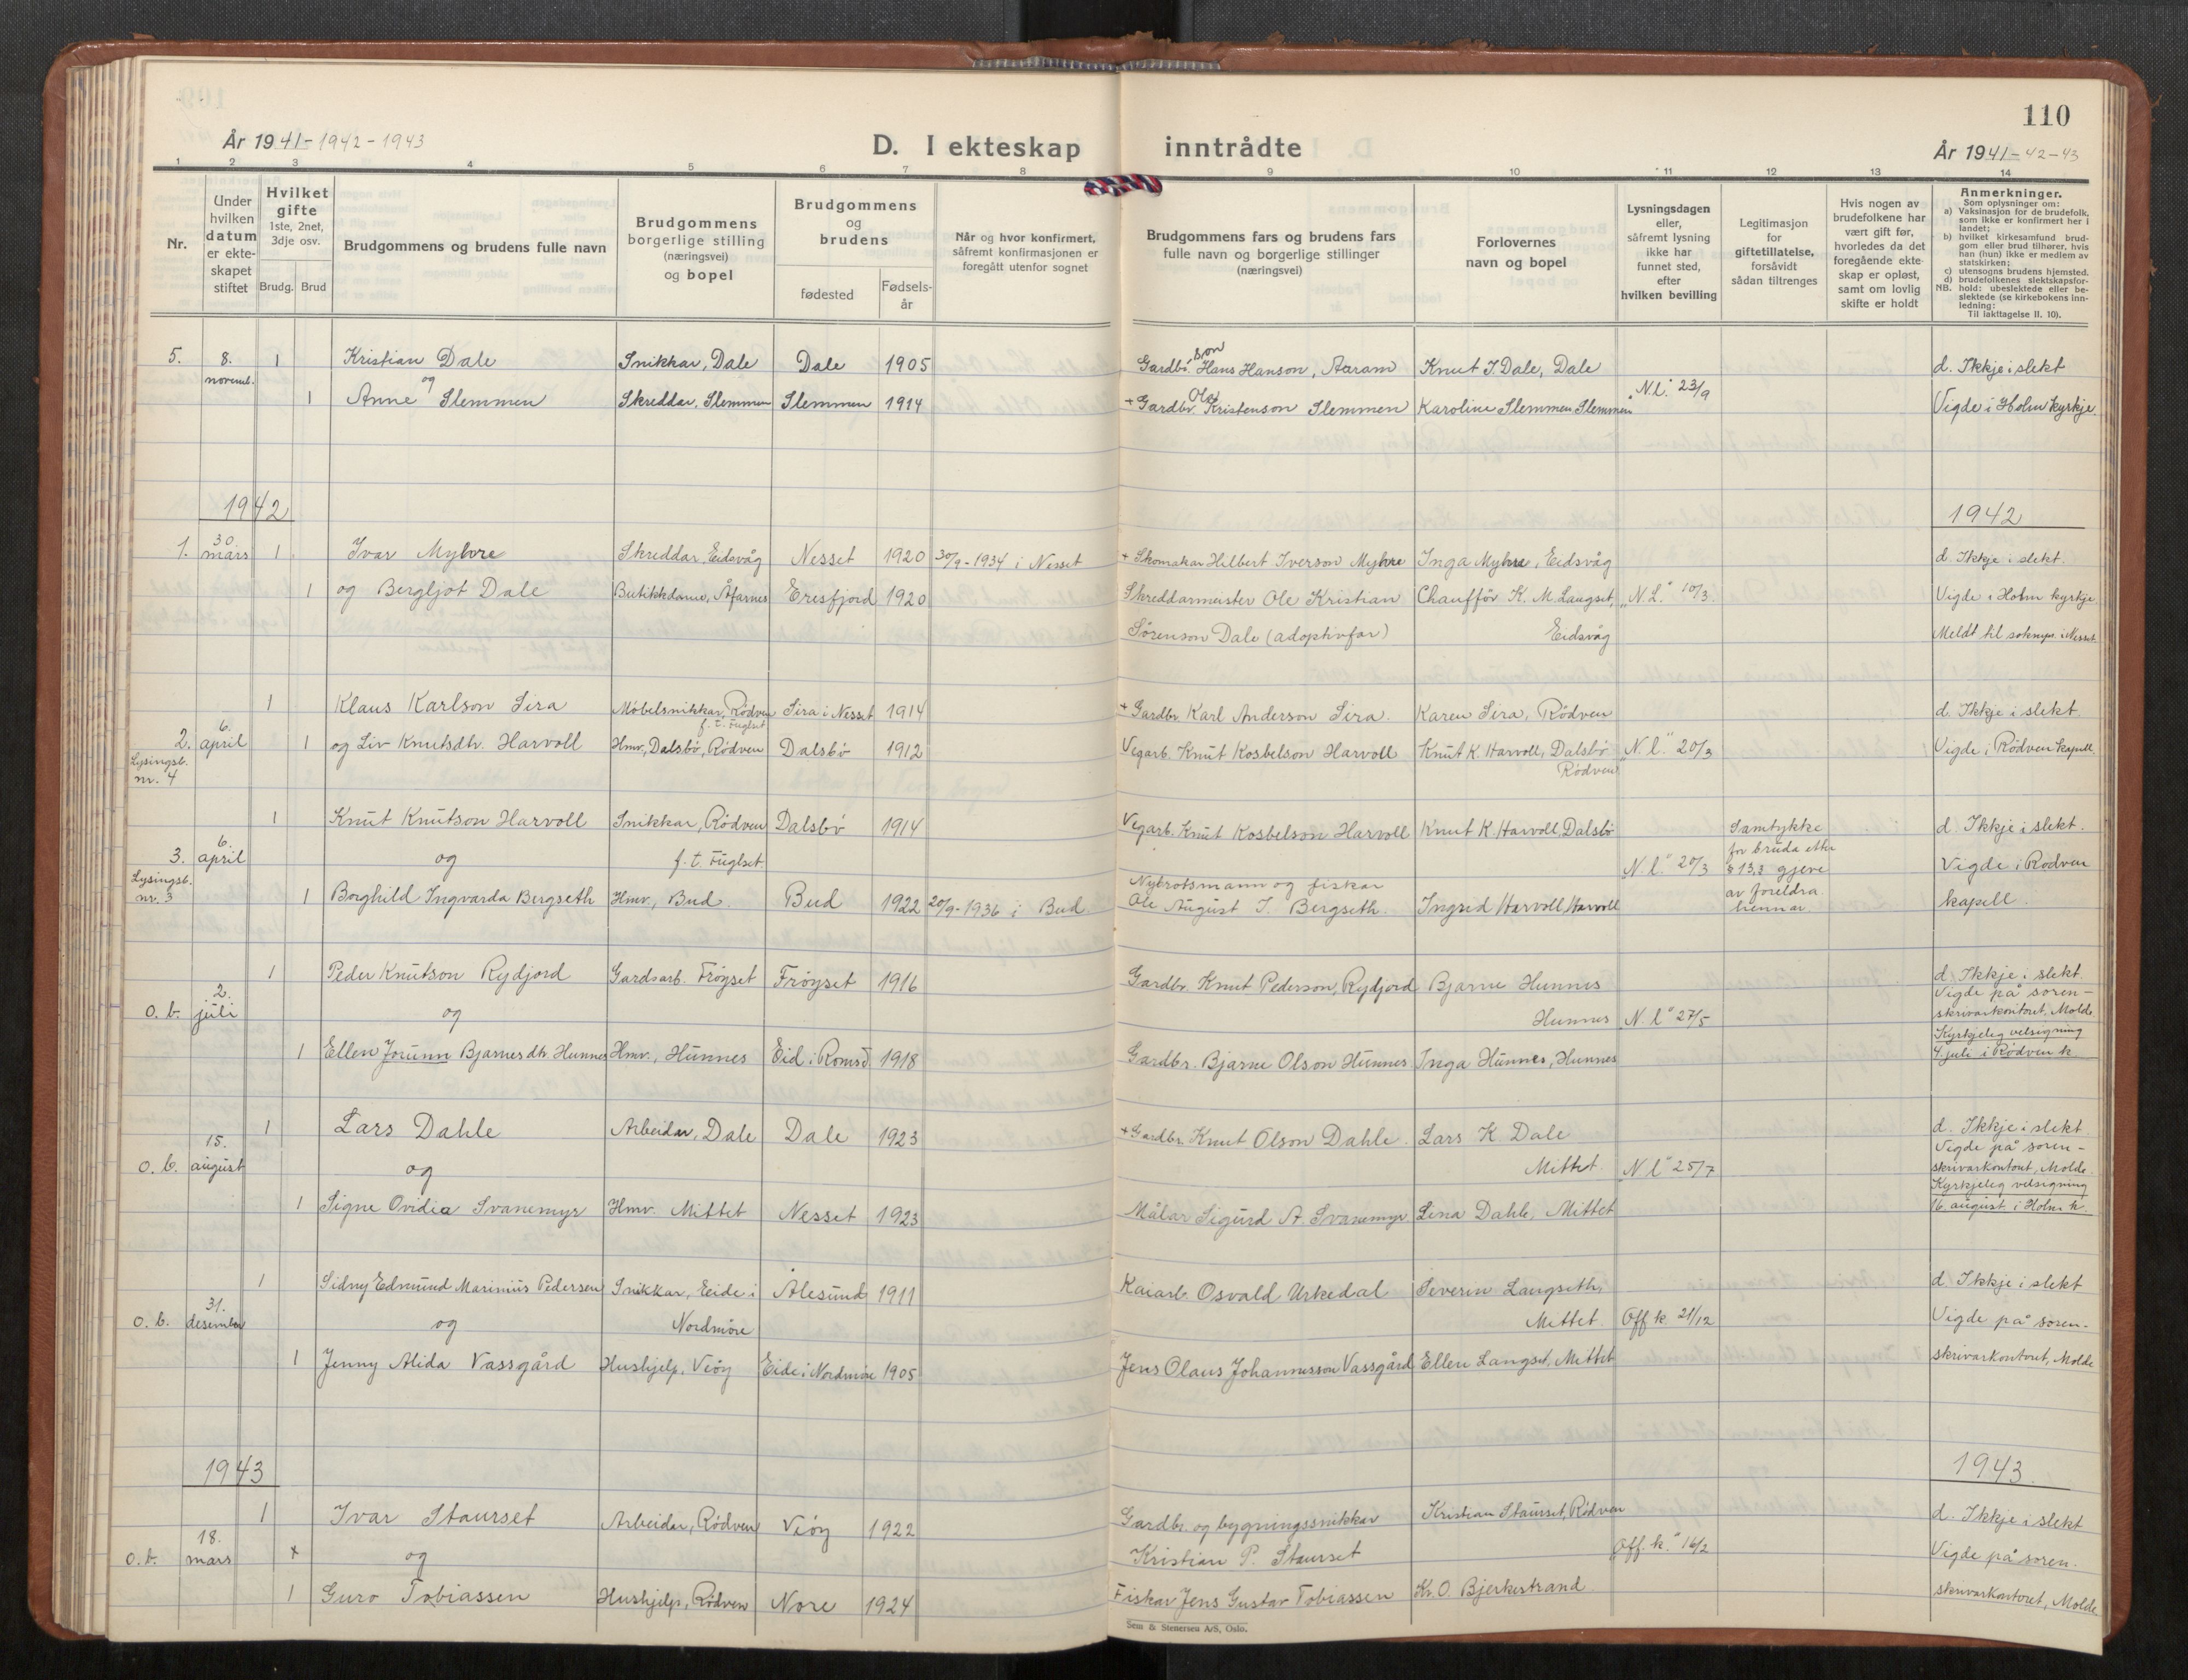 110
År 1941-1942-1943
D. I ekteskap inntrådte
År 1941-42-43
1 2 3 4 5 6 7 8 9 10 11 12 13 14
Nr.
Under
hvilken
datum
er ekte-
skapet
stiftet
Hvilket
gifte
1ste, 2net,
3dje osv.
Brudg. Brud
Brudgommens og brudens fulle navn
Brudgommens
borgerlige stilling
(næringsvei)
og bopel
Brudgommens
og
brudens
fødested
Fødsels-
år
Når og hvor konfirmert,
såfremt konfirmasjonen er
foregått utenfor sognet
Brudgommens fars og brudens fars
fulle navn og borgerlige stillinger
(næringsvei)
Forlovernes
navn og bopel
Lysningsdagen
eller,
såfremt lysning
ikke har
funnet sted,
efter
hvilken bevilling
Legitimasjon
for
giftetillatelse,
forsåvidt
sådan tiltrenges
Hvis nogen av
brudefolkene har
vært gift før,
hvorledes da det
foregående ekte-
skap er opløst,
samt om lovlig
skifte er holdt
Anmerkninger.
Som oplysninger om:
a) Vaksinasjon for de brudefolk,
som ikke er konfirmert her i
landet;
b) hvilket kirkesamfund brud-
gom eller brud tilhører, hvis
han (hun) ikke er medlem av
statskirken;
c) utensogns brudens hjemsted.
d) brudefolkenes slektskapsfor-
NB. hold: ubeslektede eller be-
slektede (se kirkebokens inn-
ledning:
Til iakttagelse II. 10).
5. 8. 1 Kristian Dale Snikkar, Dale Dale 1905 Gardbr. Hans Hanson, Aaram Knut J. Dale, Dale d. Ikkje i slekt
novemb. og son
1 Anne Slemmen Skreddar, Slemmen Slemmen 1914 + Gardbr. Ole Kristenson Slemmen Karoline Slemmen Slemmen "N.l." 23/9 Vigde i Holm kyrkje.
1942 1942
1. 30. mars 1 Ivar Myhre Skreddar, Eidsvåg Nesset 1920 30/9-1934 i Nesset + Skomakar Hilbert Iverson Myhre Inga Myhre, Eidsvåg d. Ikkje i slekt.
1 og Bergljot Dale Butikkdame, Åfarnes Eresfjord 1920 Skreddarmeister Ole Kristian Chauffør K. M. Langset, "N.L." 10/3. Vigde i Holm kyrkje.
Sörenson Dale (adoptivfar) Eidsvåg Meldt til soknepr. i Nesset.
1 Klaus Karlson Sira Möbelsnikkar, Rödven Sira i Nesset 1914 + Gardbr. Karl Anderson Sira. Karen Sira, Rödven d. Ikkje i slekt.
f. t. Fuglset
2. 6. april 1 og Liv Knutsdtr. Harvoll Hmv., Dalsbö, Rödven Dalsbö 1912 Vegarb. Knut Kosbelson Harvoll Knut K. Harvoll, Dalsbö "N.l." 20/3 Vigde i Rödven kapell.
Lysingsb. Rödven
nr. 4
1 Knut Knutson Harvoll Snikkar, Rödven Dalsbö 1914 Vegarb. Knut Kosbelson Harvoll Knut K. Harvoll, Dalsbö Samtykke d. Ikkje i slekt.
3. 6. april og f. t. Fuglset. "N.l." 20/3 for bruda etter § 13,3 gjeve Vigde i Rødven
Lysingsb. Nybrotsmann og fiskar av foreldra
nr. 3 1 Borghild Ingvarda Bergseth Hmv., Bud. Bud 1922 20/9-1936 i Bud Ole August J. Bergseth. Ingrid Harvoll, Harvoll hennar. kapell.
1 Peder Knutson Rydjord Gardsarb. Fröyset Fröyset 1916 Gardbr. Knut Pederson, Rydjord Bjarne Hunnes d. Ikkje i slekt.
o. b. 2. juli og Hunnes "N.l." 27/5 Vigde på soren-
skrivarkontoret, Molde
Kyrkjeleg velsigning
1 Ellen Jorunn Bjarnesdtr. Hunnes Hmv., Hunnes Eid i Romsd. 1918 Gardbr. Bjarne Olson Hunnes. Inga Hunnes, Hunnes 4. juli i Rödven k.
1 Lars Dahle Arbeidar, Dale Dale 1923 + Gardbr. Knut Olson Dahle. Lars K. Dale d. Ikkje i slekt.
o. b. 15. august og Mittet. "N.l." 25/7 Vigde på soren-
skrivarkontoret, Molde.
Kyrkjeleg velsigning
1 Signe Ovidia Svanemyr Hmv. Mittet Nesset 1923 Målar Sigurd A. Svanemyr Lina Dahle, Mittet 16. august i Holm k.
1 Sidny Edmund Marinius Pedersen Snikkar, Eide i Ålesund 1911 Kaiarb. Osvald Urkedal Severin Langseth, d. Ikkje i slekt
o. b. 31. desember og Nordmöre Mittet. Off. k. 21/12 Vigde på soren-
1 Jenny Alida Vassgård Hushjelp, Veöy Eide i Nordmöre 1905 Jens Olaus Johannesson Vassgård Ellen Langset, Mittet skrivarkontoret, Molde
1943 1943
1 Ivar Staurset Arbeidar, Rödven Veöy 1922 Gardbr. og bygningssnikkar Kristian Staurset, Rödven d. Ikkje i slekt
o. b. 18. mars + og Kristian P. Staurset "Off. k." 16/2 Vigde på soren.
1 Guro Tobiassen Hushjelp, Rödven Nore 1924 Fiskar Jens Gustav Tobiassen Kr. O. Bjerkestrand skrivarkontoret, Molde
Sem & Stenersen A/S, Oslo.